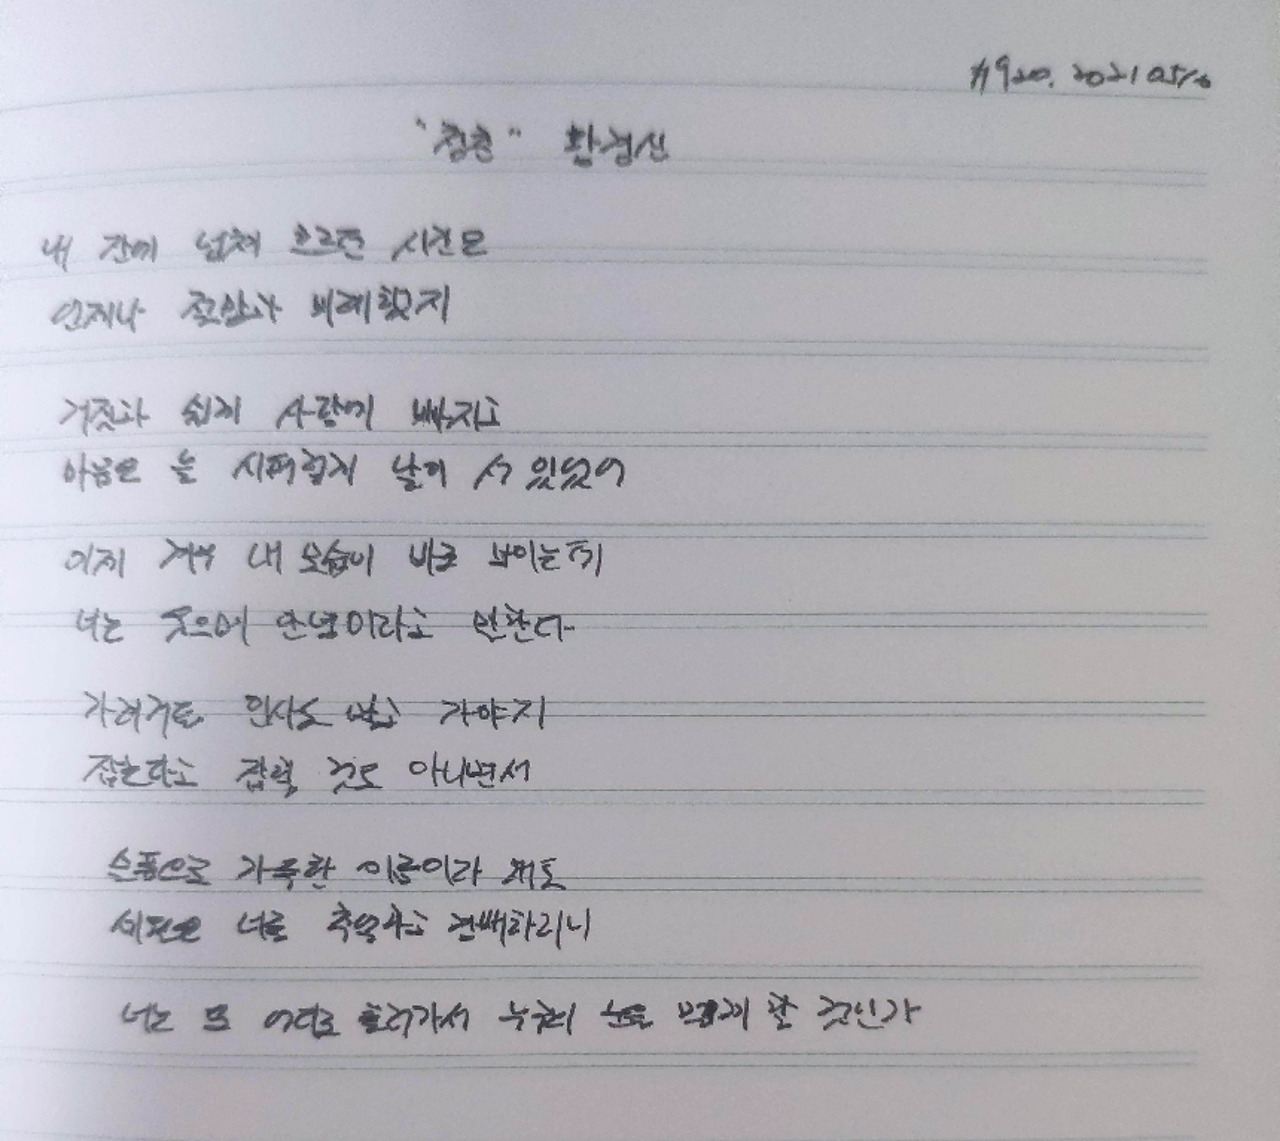 #920. 2021
"청춘" 황경신
내 잔에 넘쳐 흐르던 시간은
언제나 절망과 비례했지
거짓과 쉽게 사랑에 빠지고
마음은 늘 시퍼렇게 날이 서 있었어
이제 겨우 내 모습이 바로 보이는데
너는 웃으며 안녕이라고 말한다
가려거든 인사도 말고 가야지
잡는다고 잡힐 것도 아니면서
슬픔으로 가득한 이름이라 해도
세월은 너를 추억하고 경배하리니
너는 또 어디로 흘러가서 누구의 눈을 멀게 할 것인가